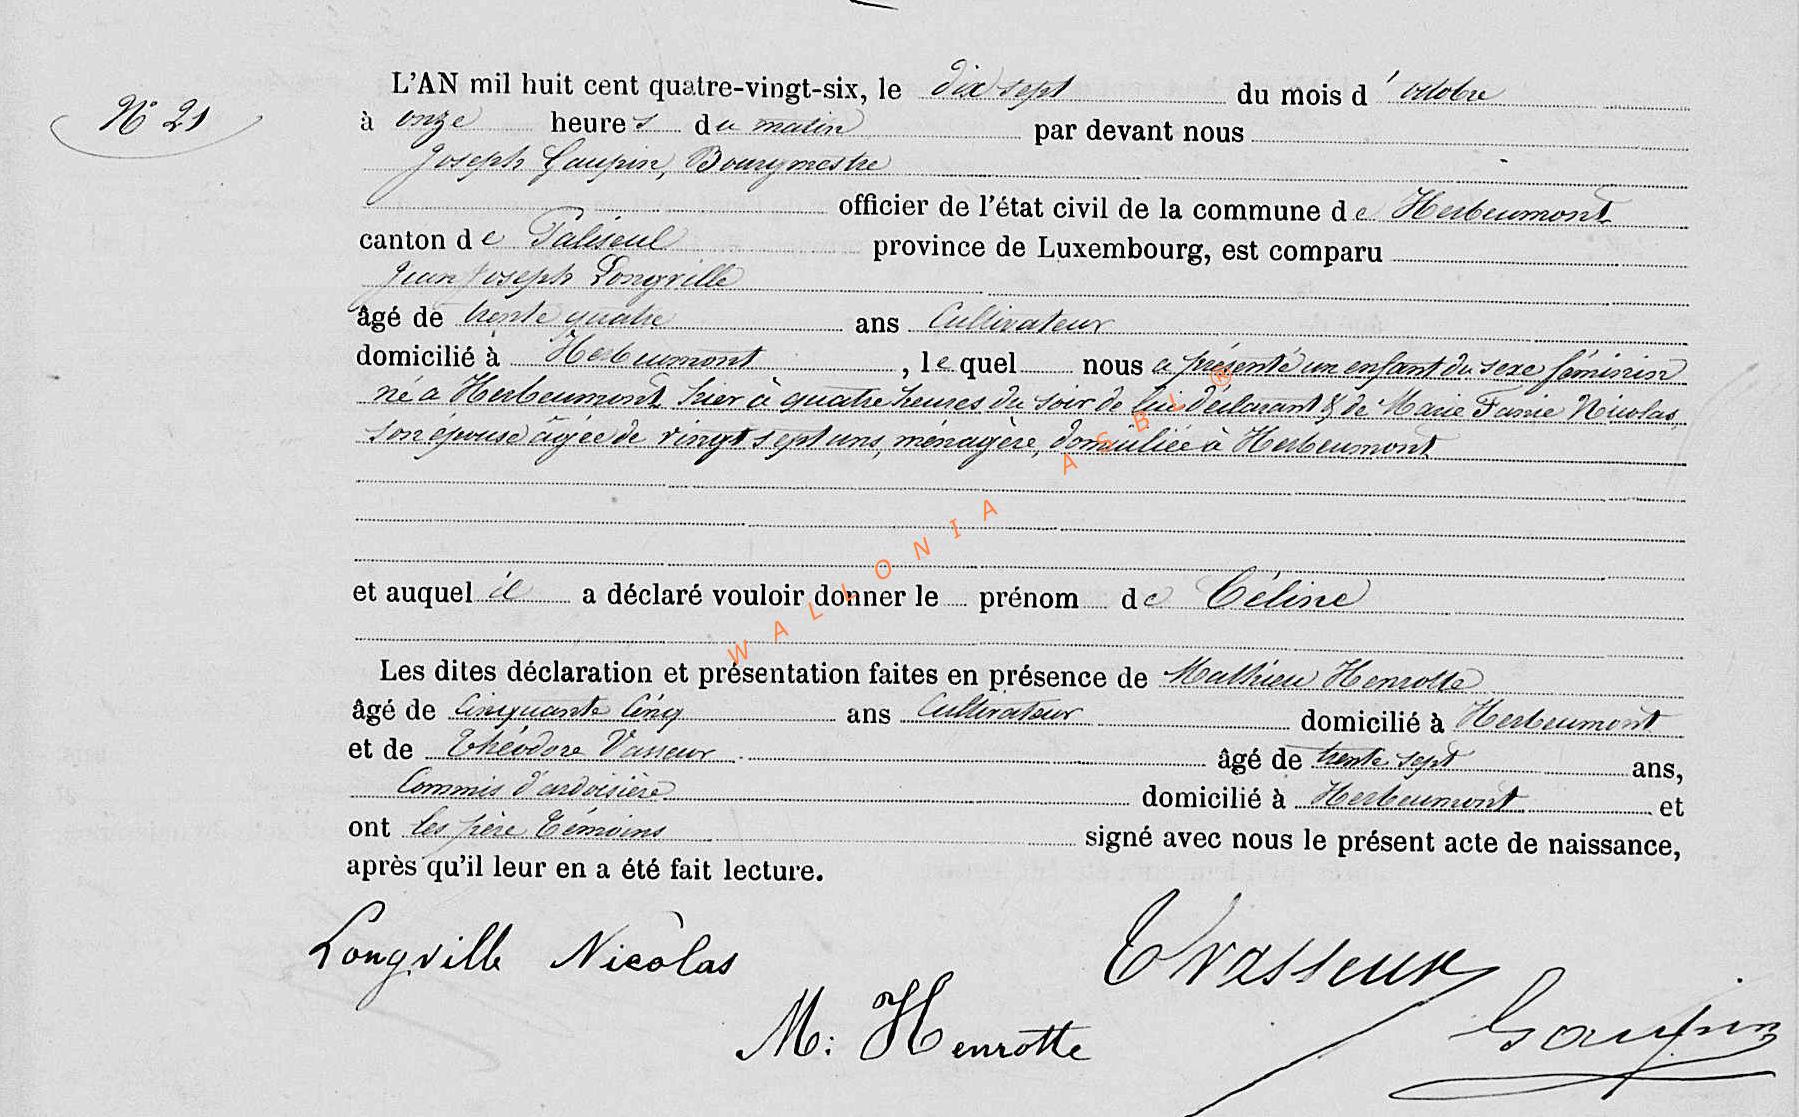 N° 21
L'AN mil huit cent quatre-vingt-six, le dix sept du mois d'octobre
à onze heures du matin par devant nous
Joseph Gaupin, Bourgmestre
officier de l'état civil de la commune de Herbeumont
canton de Paliseul province de Luxembourg, est comparu
Jean Joseph Longville
âgé de trente quatre ans Cultivateur
domicilié à Herbeumont, lequel nous a présenté un enfant du sexe féminin
né a Herbeumont hier à quatre heures du soir de lui déclarant & de Marie Fanie Nicolas,
son épouse âgée de vingt sept ans, ménagère, domiciliée à Herbeumont
et auquel il a déclaré vouloir donner le prénom de Céline
Les dites déclaration et présentation faites en présence de Mathieu Henrotte
âgé de Cinquante Cinq ans Cultivateur domicilié à Herbeumont
et de Théodore Vasseur âgé de trente sept ans,
Commis d'ardoisière domicilié à Herbeumont et
ont les père témoins signé avec nous le présent acte de naissance,
après qu'il leur en a été fait lecture.
Longville Nicolas
T Vasseur
M: Henrotte
Gaupin
WALLONIA ASBL ®